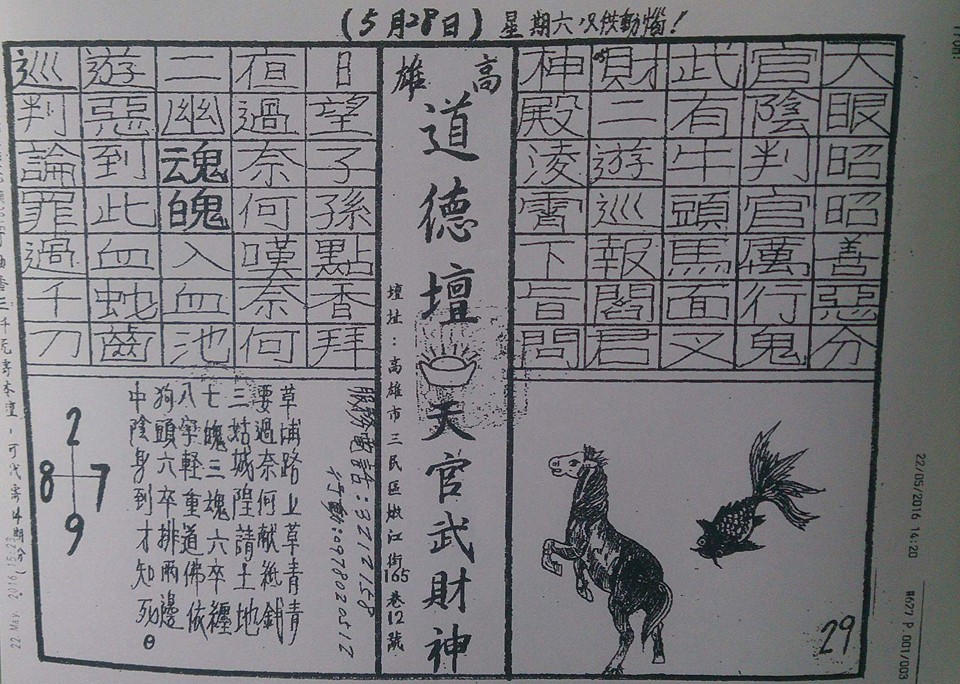 (5月28日)星期六只供動惱!
大眼昭昭善惡分
官陰判官厲行鬼
武有牛頭馬面叉
財二遊巡報閻君
神殿淩霄下旨問
高雄
道德壇
天官武財神
壇址:高雄市三民區嫩江街165巷12號
日望子孫點香拜
夜過奈何嘆奈何
二幽魂魄入血池
遊惡到此血蛇齒
巡判論罪過千刀
服務電話:3212158
行動:0978020517
草埔路上草青青
要過奈何献紙錢
三姑城隍請土地
七魄三魂六卒纏
八字軽重道佛依
狗頭六卒排兩邊
中陰身到才知死
2
8 7
9
29
22/05/2016 14:20
#627 P.001/003
22 May. 2016 15:23